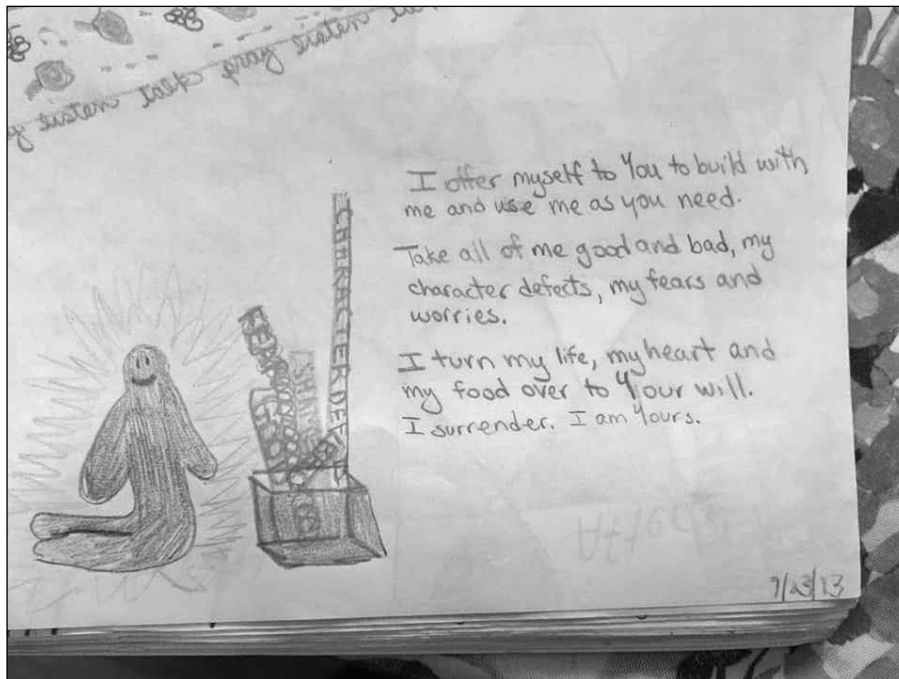 listen talk pray listen
I offer myself to You to build with
me and use me as you need.
Take all of me good and bad, my
character defects, my fears and
worries.
I turn my life, my heart and
my food over to Your will.
I surrender. I am Yours.
CHARACTER DEFECTS
FEAR
9/23/13